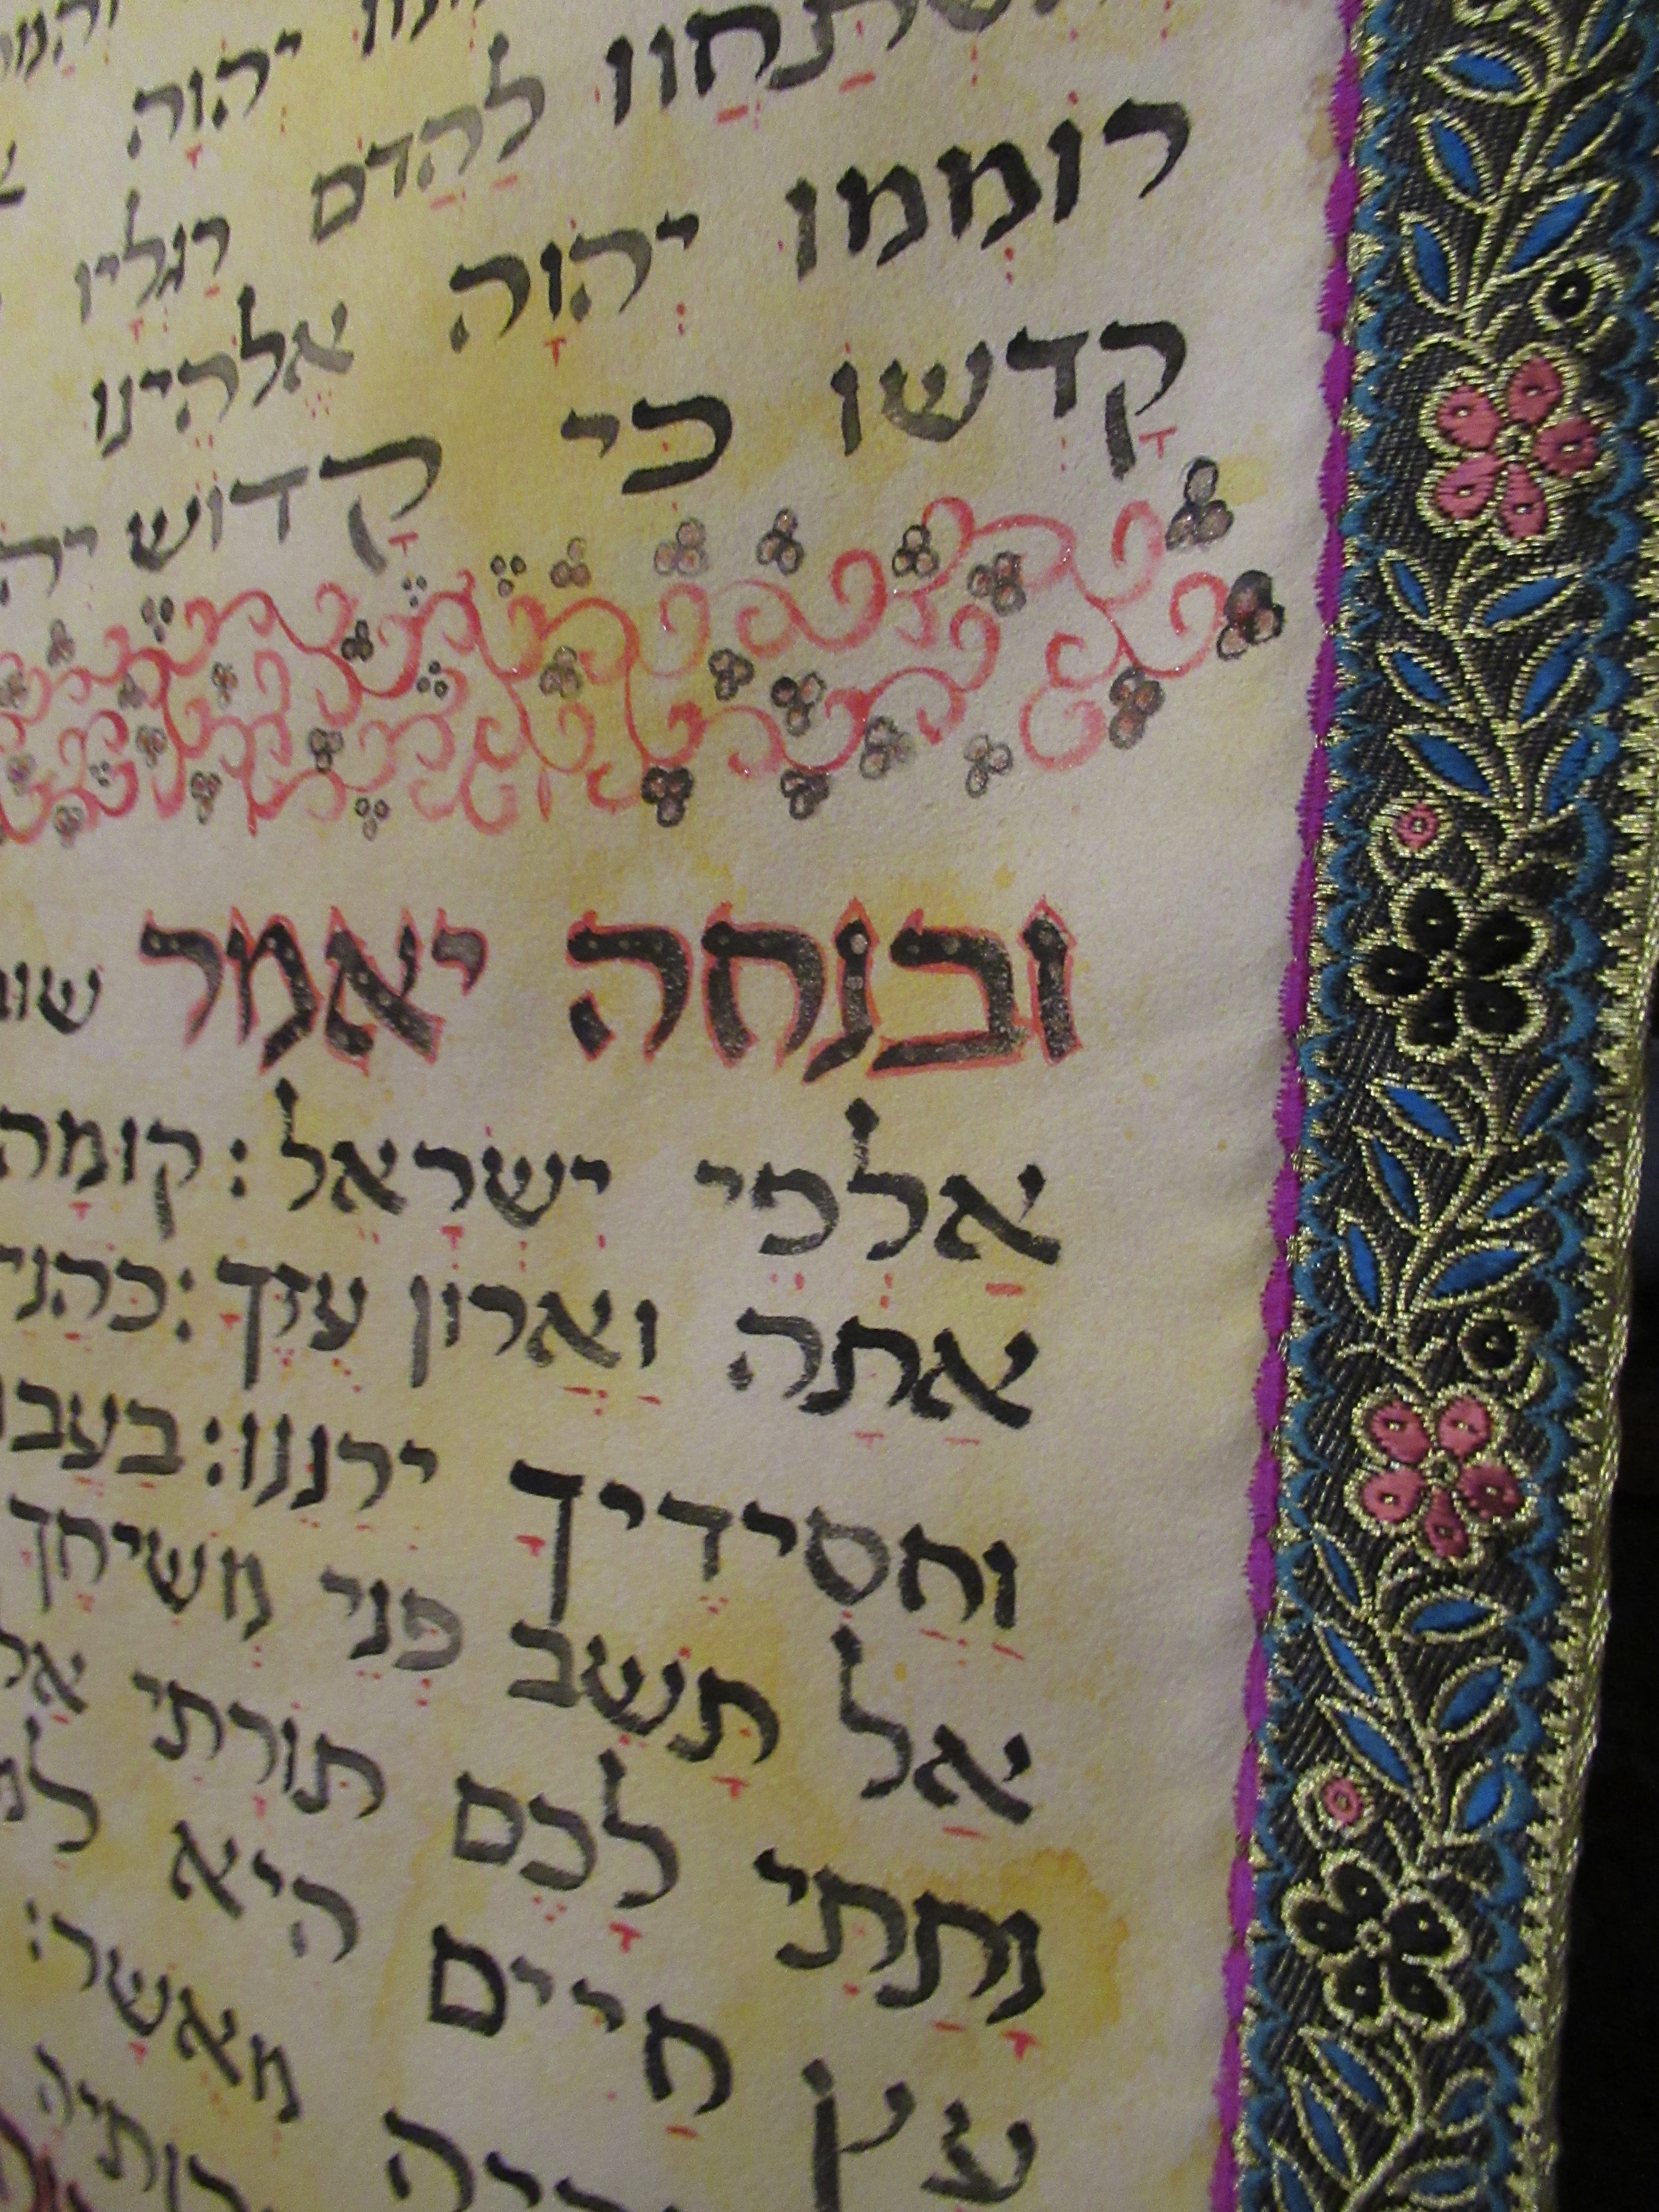 יהוה
השתחוו להדם רגליו
רוממו יהוה אלהינו
קדשו כי קדוש
ובנחה יאמר
אלפי ישראל: קומה
אתה וארון עזך: כהני
וחסידיך ירננו: בעבו
אל תשב פני משיחך
נתתי לכם תורתי אל
עץ חיים היא
מאשר: